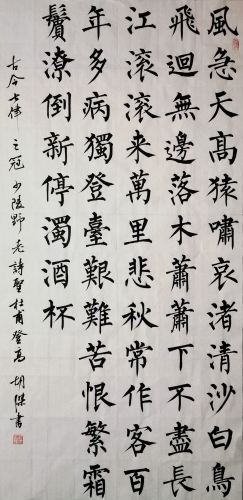 風急天高猿嘯哀渚清沙白鳥
飛迴無邊落木蕭蕭下不盡長
江滾滾来萬里悲秋常作客百
年多病獨登臺艱難苦恨繁霜
鬢潦倒新停濁酒杯
古今七律之冠少陵野老詩聖杜甫登高 胡傑書